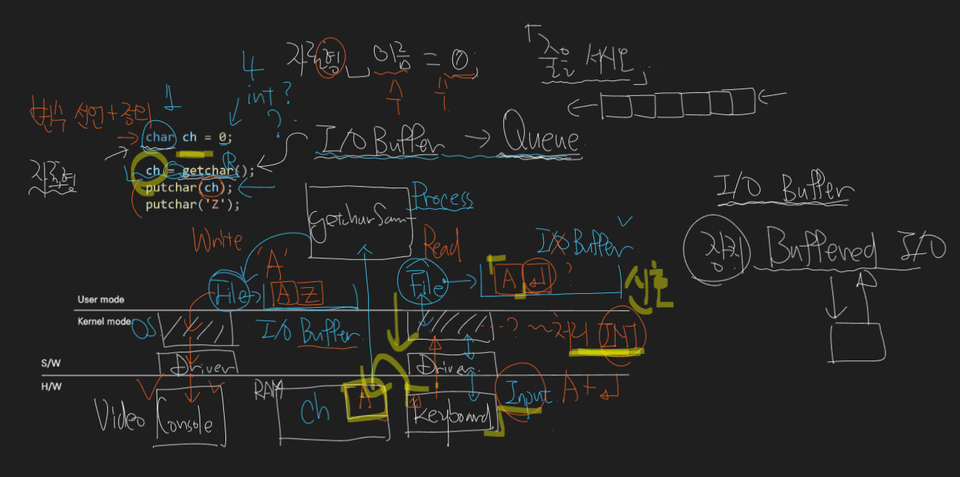 자료형 이름 = 0;
「줄 서시오」
4
int?
?
변수 선언 + 정의
char ch = 0;
I/O Buffer → Queue
ch = getchar();
자료형
putchar(ch);
putchar('Z');
Process
I/O Buffer
Write
Read
I/O Buffer
장치 Buffered I/O
'A'
File
A Z
File
A ?
신호
User mode
Kernel mode
OS
I/O Buffer
?
Driver
Driver
S/W
H/W
RAM
Input A +
Video
Console
ch
A
Keyboard